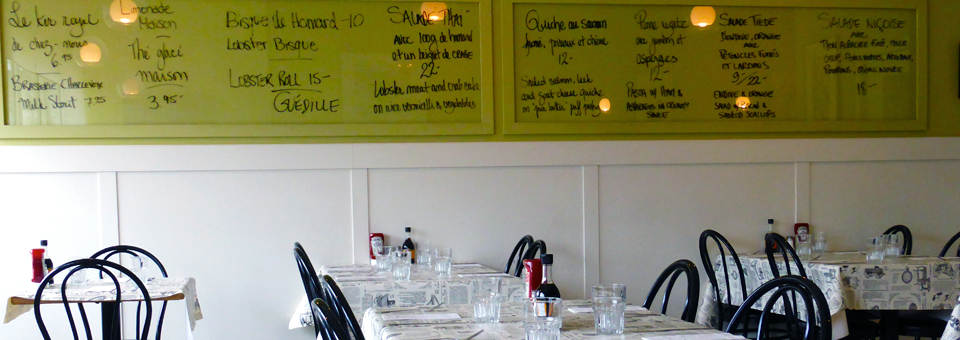 Le Kir royal
de chez-nous
6.95
Brasserie Charlevoix
Milk Stout 7.25
Limonade
Maison
Thé glacé
maison
3.95
Bisque de Homard -10
Lobster Bisque
Lobster Roll 15-
Guédille
Salade Thaï
avec
et un
22-
Lobster meat and crab cake
on rice vermicelli & vegetables
Quiche au saumon
fumé, poireaux et chèvre
12-
Smoked salmon, leek
and goat cheese quiche
puff pastry
Penne
au jambon et
asperges
12-
Pasta w/ Ham &
Asparagus in creamy
sauce
Salade Tiède
D'endive, orange
avec
Pétoncles fumés
et lardons
9/22-
Endive & orange
salad
smoked scallops
Salade Niçoise
avec
18-